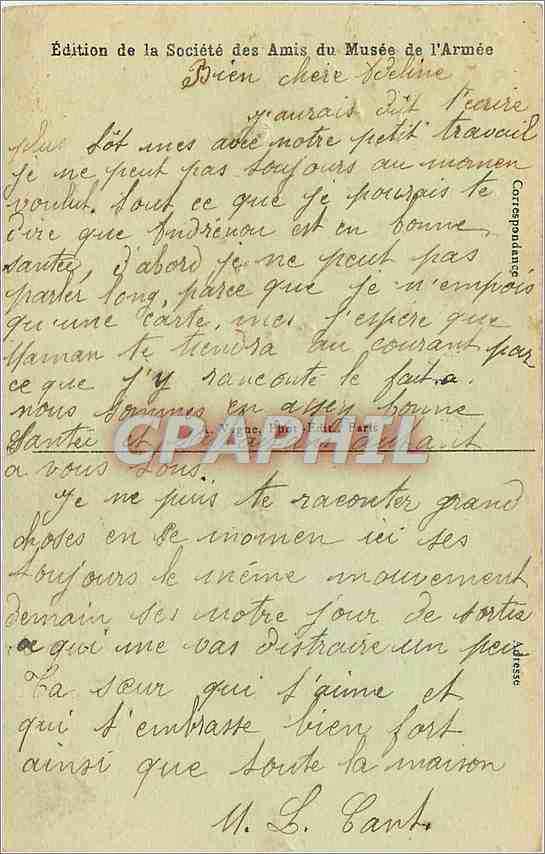 Édition de la Société des Amis du Musée de l'Armée
Bien chère Adeline
j'aurais dût t'écrire
plus tôt mes avec notre petit travail
je ne peut pas toujours au momen
voulut. tout ce que je pourais te
dire que est en bonne
santée, d'abord je ne peut pas
parler long, parce que je n'empois
qu'une carte, mes j'espère que
Maman te tiendra au courant par
ce que j'y rancoute le fait.
nous sommes en assez bonne
Vague, Phot-Édit. Paris
santée et
a vous tous
Je ne puis te raconter grand
choses en se momen ici ses
toujours le même mouvement
demain ses notre jour de sortie
qui me vas distraire un peu
Ta sœur qui t'aime et
qui t'embrasse bien fort
ainsi que toute la maison
M. L. Cant.
Correspondance
Adresse
CPAPHIL